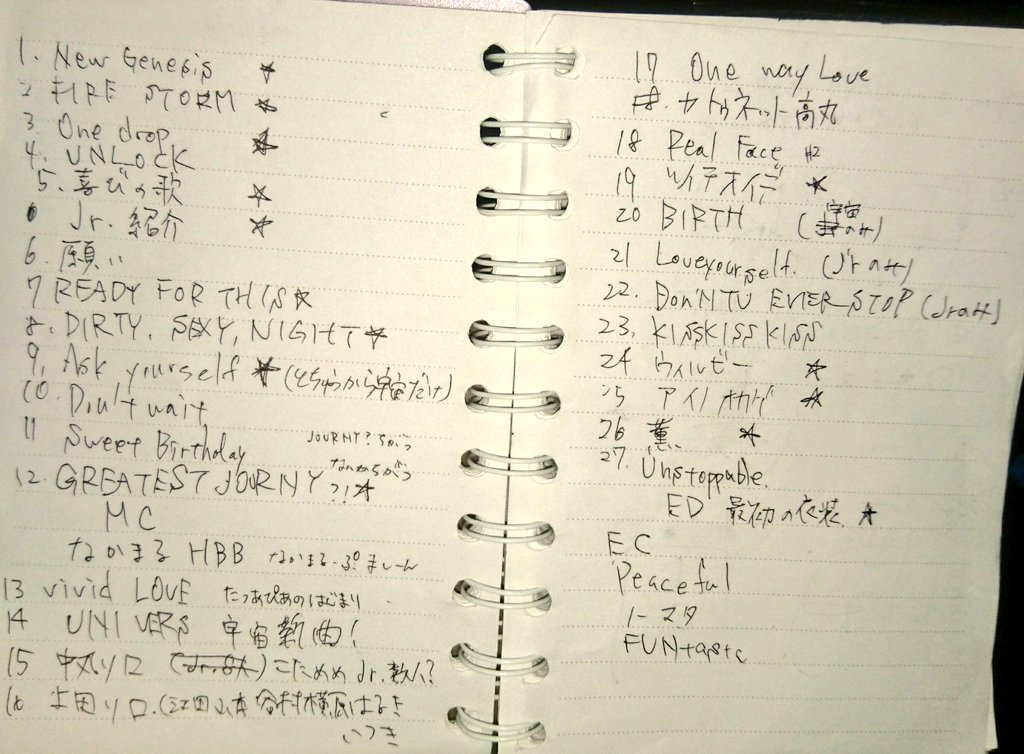 1. New Genesis ★
2 FIRE STORM ★
3 One drop ★
4. UNLOCK
5. 喜びの歌 ★
Jr. 紹介 ★
6. 願い
7 READY FOR THIS★
8. DIRTY, SEXY, NIGHT★
9, Ask yourself ★(とちゅうから宇宙だけ)
10. Don't wait
11 Sweet Birthday
JOURNY? ちがう
12. GREATEST JOURNY ?!★
MC
なかまる HBB なかまる・ぷましーん
13 vivid LOVE たつあぴあのはじまり
14 UNIVERS 宇宙新曲!
15 中丸ソロ こたぬめ Jr. 数人?
16 上田ソロ.(江田 谷村横原はるき
いつき
17 One way Love
カトゥネット高丸
18 Real Face #2
19 ツイテオイデ ★
20 BIRTH (宇宙のみ)
21 Loveyourself. (Jrあり)
22. DON'NTU EVER STOP (Jrあり)
23. KISSKISSKISS
24 ウィルビー ★
25 アイノオカゲ ★
26 薫 ★
27. Unstoppable.
ED 最初の衣装. ★
EC
Peaceful
ノーマタ
FUNtastic